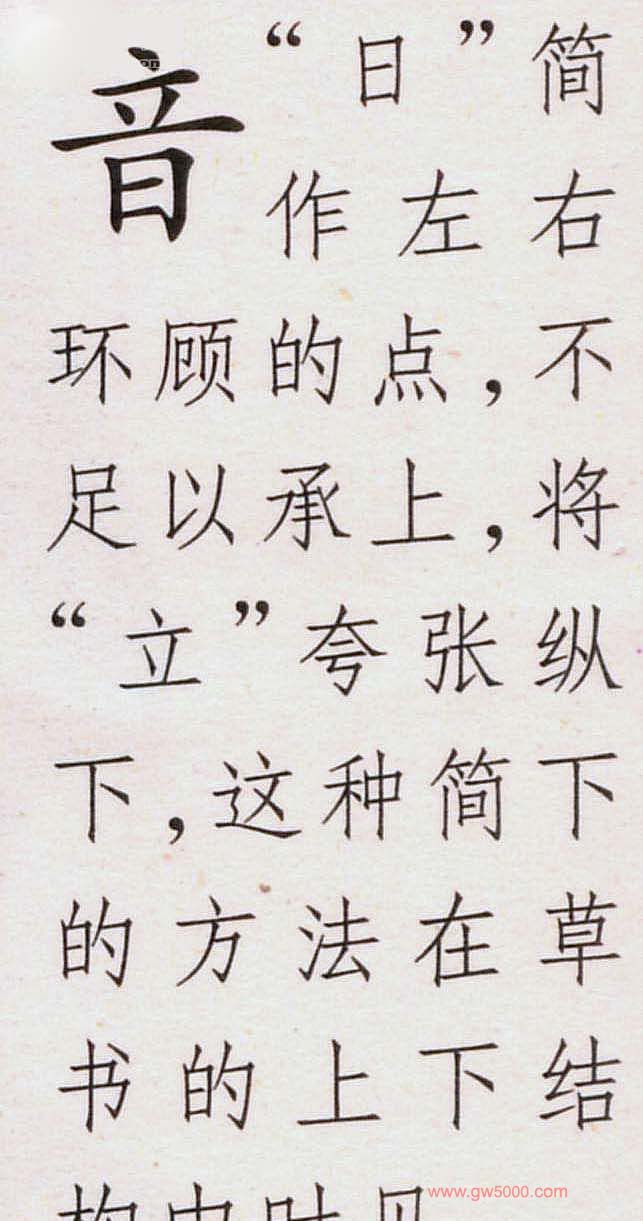 音
“日”简
作左右
环顾的点,不
足以承上,将
“立”夸张纵
下,这种简下
的方法在草
书的上下结
构中时见
www.gw5000.com